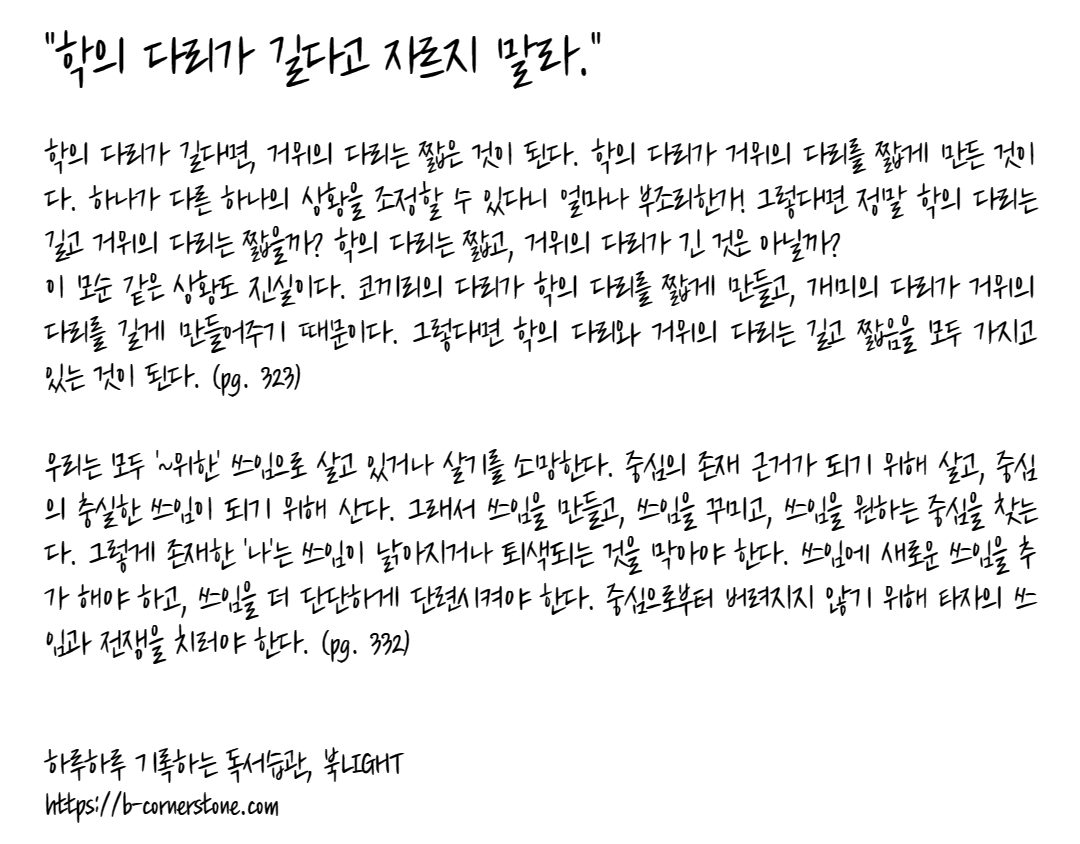 "학의 다리가 길다고 자르지 말라."
학의 다리가 길다면, 거위의 다리는 짧은 것이 된다. 학의 다리가 거위의 다리를 짧게 만든 것이
다. 하나가 다른 하나의 상황을 조정할 수 있다니 얼마나 부조리한가! 그렇다면 정말 학의 다리는
길고 거위의 다리는 짧을까? 학의 다리는 짧고, 거위의 다리가 긴 것은 아닐까?
이 모순 같은 상황도 진실이다. 코끼리의 다리가 학의 다리를 짧게 만들고, 개미의 다리가 거위의
다리를 길게 만들어주기 때문이다. 그렇다면 학의 다리와 거위의 다리는 길고 짧음을 모두 가지고
있는 것이 된다. (pg. 323)
우리는 모두 '~위한' 쓰임으로 살고 있거나 살기를 소망한다. 중심의 존재 근거가 되기 위해 살고, 중심
의 충실한 쓰임이 되기 위해 산다. 그래서 쓰임을 만들고, 쓰임을 꾸미고, 쓰임을 원하는 중심을 찾는
다. 그렇게 존재한 '나'는 쓰임이 낡아지거나 퇴색되는 것을 막아야 한다. 쓰임에 새로운 쓰임을 추
가 해야 하고, 쓰임을 더 단단하게 단련시켜야 한다. 중심으로부터 버려지지 않기 위해 타자의 쓰
임과 전쟁을 치러야 한다. (pg. 332)
하루하루 기록하는 독서습관, 북LIGHT
https://b-cornerstone.com